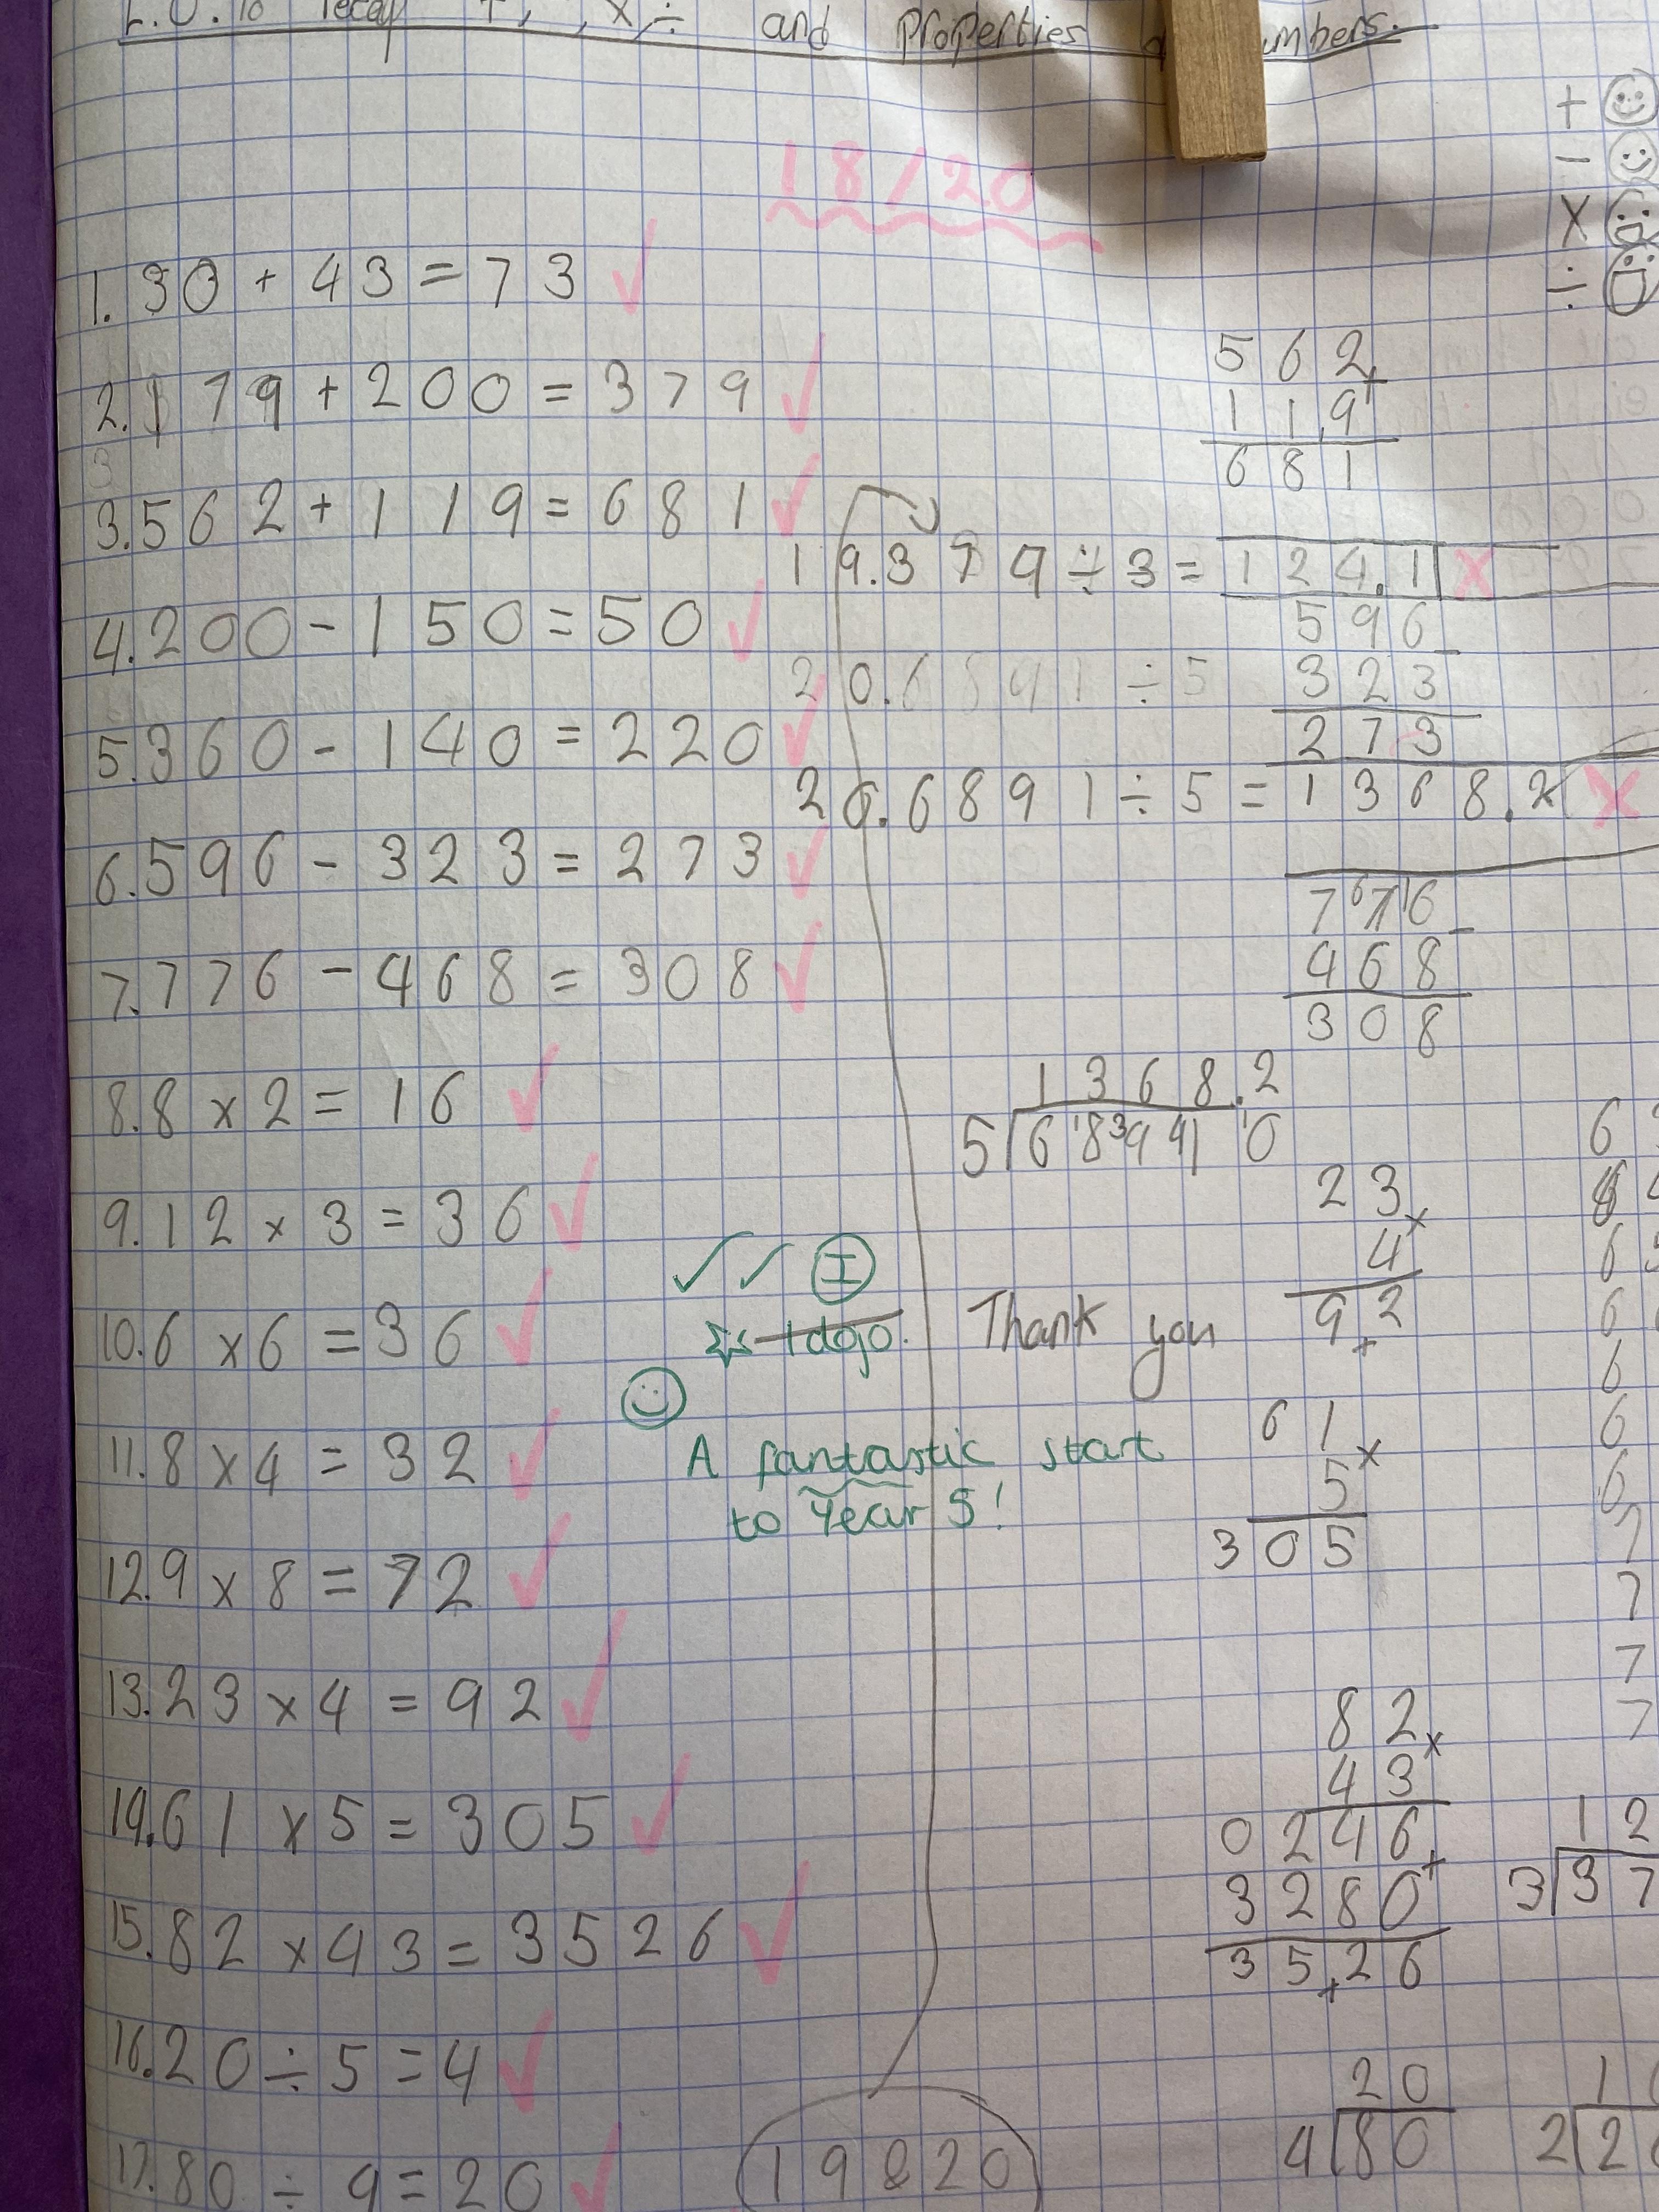 and properties
18/20
1. 30 + 43 = 73
2. 179 + 200 = 379
3. 562 + 119 = 681
4. 200 - 150 = 50
5. 360 - 140 = 220
6. 596 - 323 = 273
7. 776 - 468 = 308
8. 8 x 2 = 16
9. 12 x 3 = 36
10. 6 x 6 = 36
11. 8 x 4 = 32
12. 9 x 8 = 72
13. 23 x 4 = 92
14. 61 x 5 = 305
15. 82 x 43 = 3526
16. 20 ÷ 5 = 4
17. 80 ÷ 4 = 20
19 & 20
19. 379 ÷ 3 = 124.1
20. 6841 ÷ 5
20. 6891 ÷ 5 = 1368.2
✓✓ I
1 dojo.
A fantastic start
to Year 5!
Thank you
+
-
x
÷
562 +
119
681
596 -
323
273
776 -
468
308
1368.2
5 6 8 9 1 0
23 x
4
92
61 x
5
305
82 x
43
0246 +
3280
3526
20
4 80
12
3 37